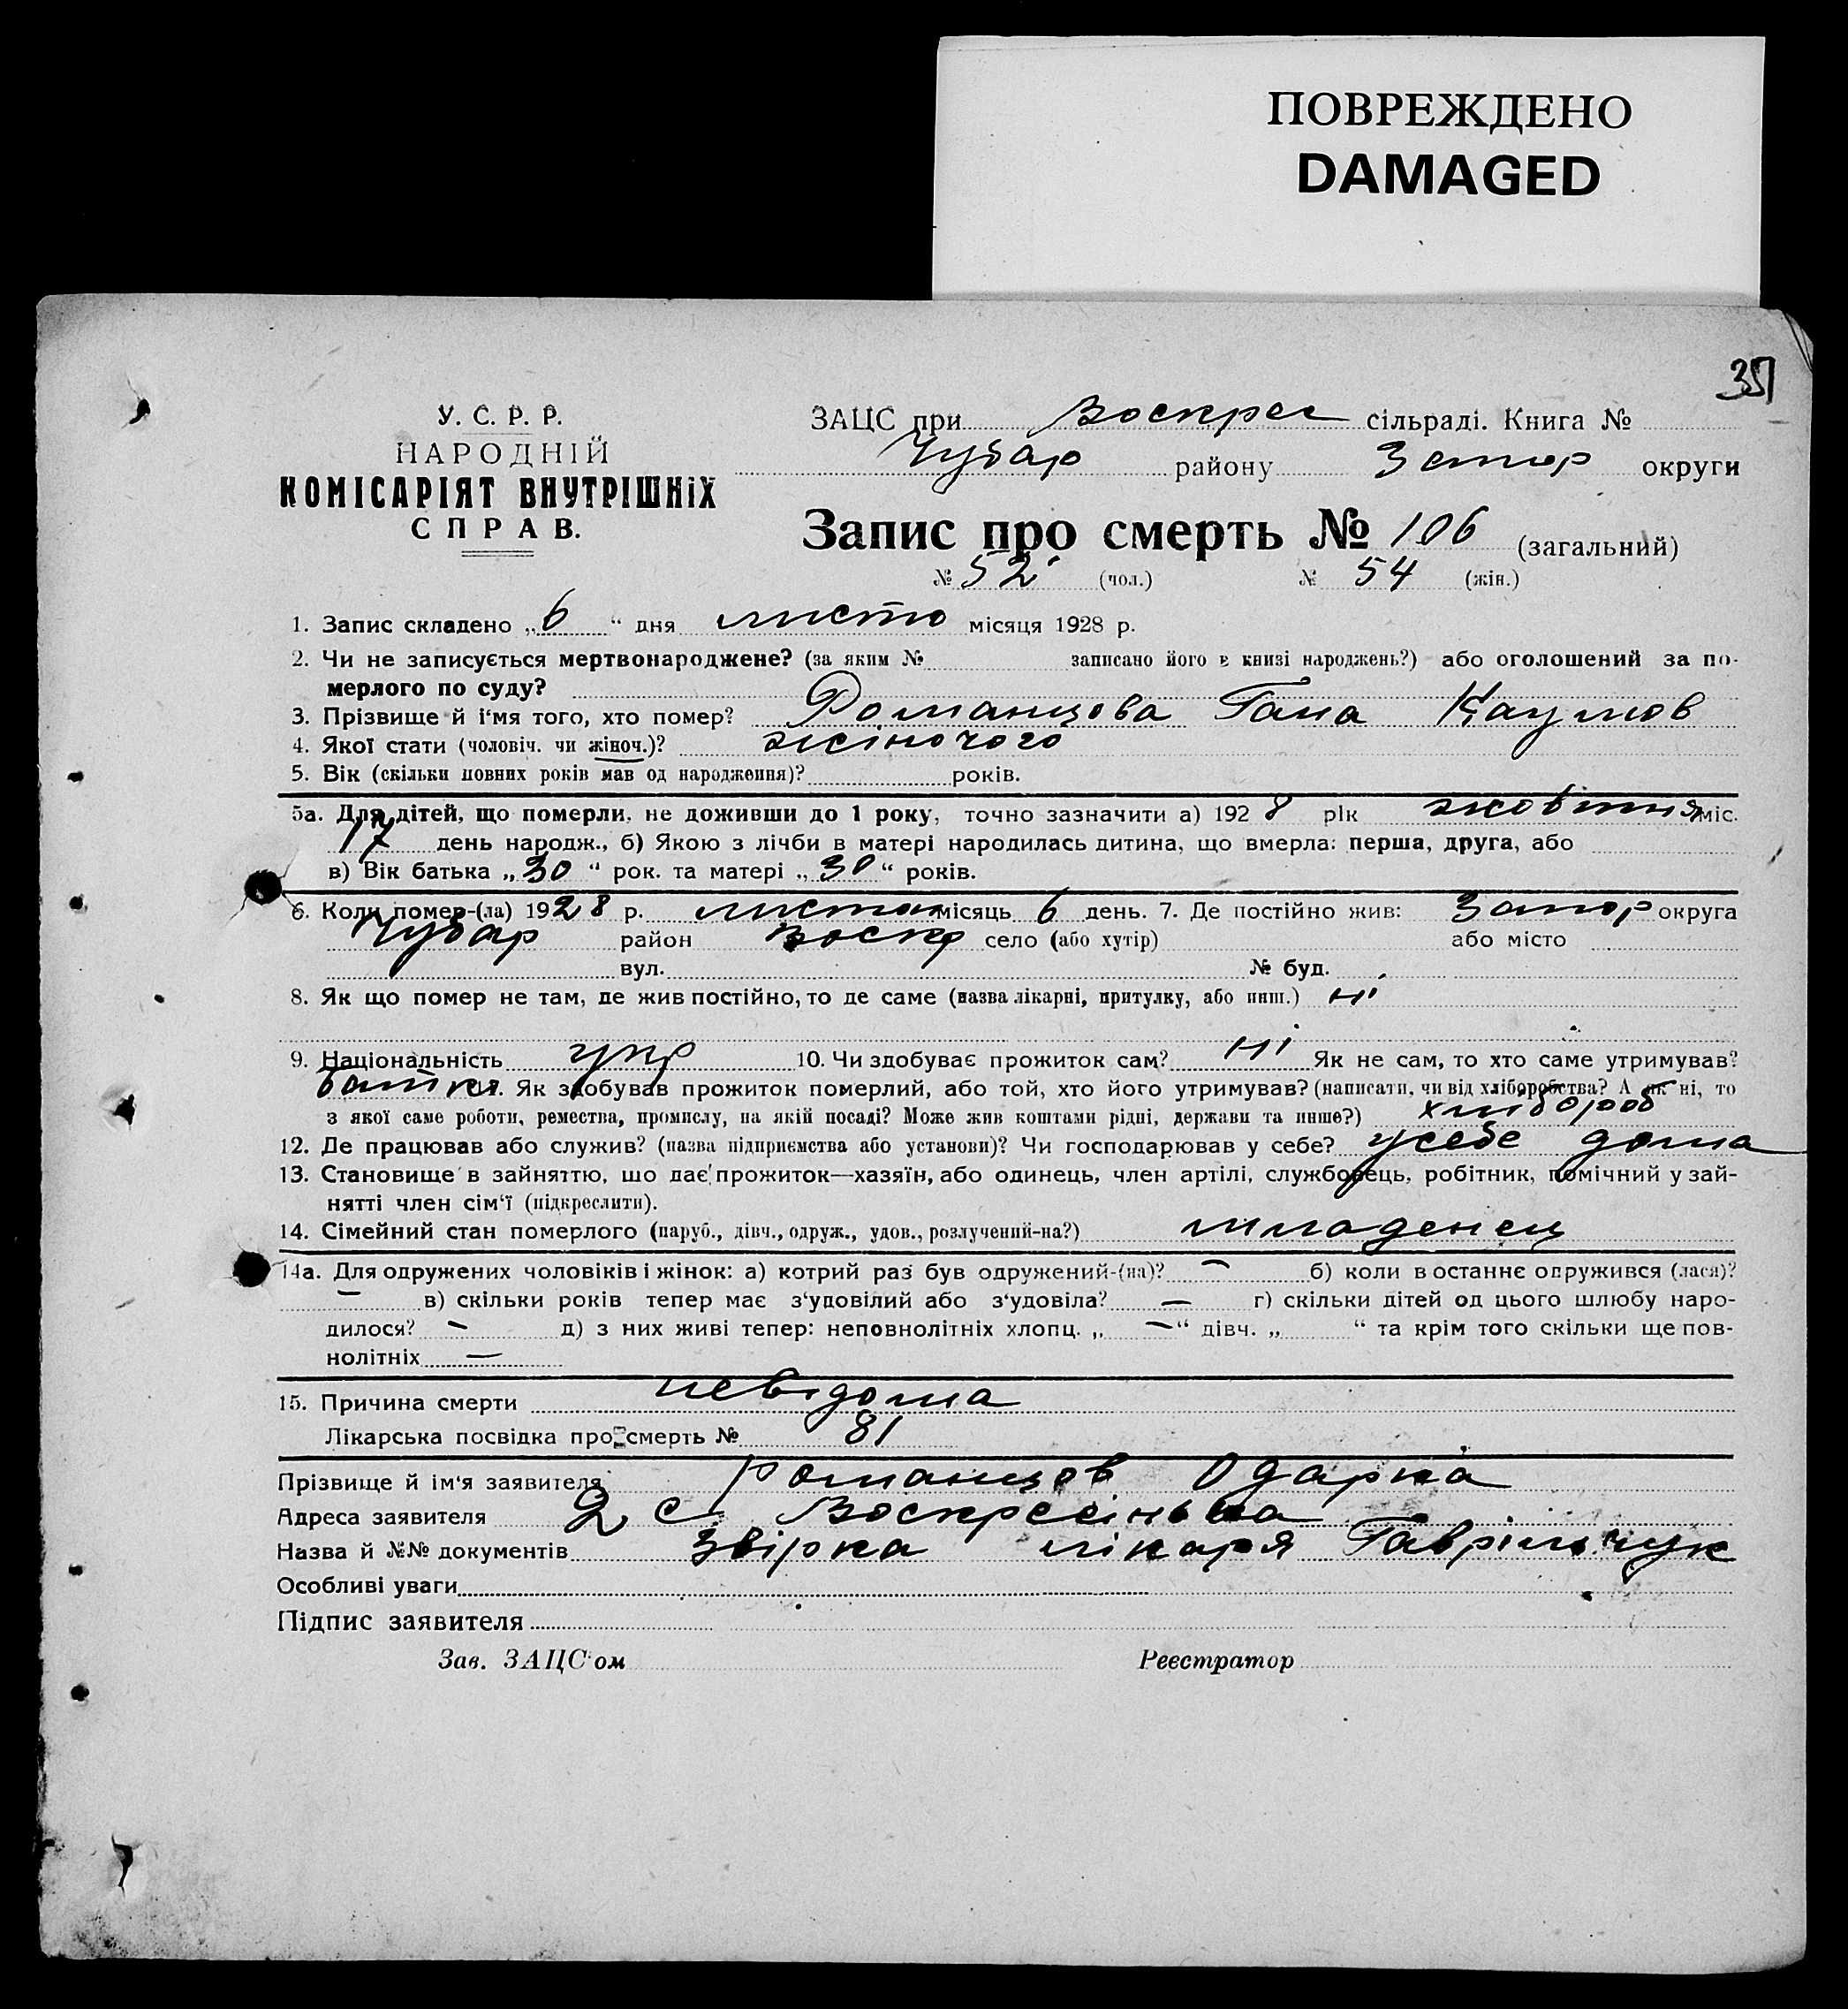 ПОВРЕЖДЕНО
DAMAGED
351
У. С. Р. Р.
НАРОДНІЙ
КОМІСАРІЯТ ВНУТРІШНІХ
СПРАВ.
ЗАЦС при Воскрес сільраді. Книга №
Чубар району Запор округи
Запис про смерть № 106 (загальний)
№ 52 (чол.) № 54 (жін.)
1. Запис складено „6“ дня листо місяця 1928 р.
2. Чи не записується мертвонароджене? (за яким № записано його в книзі народжень?) або оголошений за по-
мерлого по суду?
3. Прізвище й і'мя того, хто помер? Романцова Гана
4. Якої стати (чоловіч. чи жіноч.)? жіночого
5. Вік (скільки повних років мав од народження)? років.
5а. Для дітей, що померли, не доживши до 1 року, точно зазначити а) 1928 рік жовтня міс.
17 день народж., б) Якою з лічби в матері народилась дитина, що вмерла: перша, друга, або
в) Вік батька „30“ рок. та матері „30“ років.
6. Коли помер-(ла) 1928 р. листоп місяць 6 день. 7. Де постійно жив: Запор округа
Чубар район Воскр село (або хутір) або місто
вул. № буд.
8. Як що помер не там, де жив постійно, то де саме (назва лікарні, притулку, або инш.) ні
9. Національність укр 10. Чи здобуває прожиток сам? ні Як не сам, то хто саме утримував?
батько. Як здобував прожиток померлий, або той, хто його утримував? (написати, чи від хліборобства? А як ні, то
з якої саме роботи, ремества, промислу, на якій посаді? Може жив коштами рідні, держави та инше?) хлібороб
12. Де працював або служив? (назва підприємства або установи)? Чи господарював у себе? усебе дома
13. Становище в зайняттю, що дає прожиток—хазяїн, або одинець, член артілі, службовець, робітник, помічний у зай-
нятті член сім'ї (підкреслити).
14. Сімейний стан померлого (паруб., дівч., одруж., удов., розлучений-на?) младенец
14а. Для одружених чоловіків і жінок: а) котрий раз був одружений-(на)? — б) коли в останнє одружився (лася)?
— в) скільки років тепер має з'удовілий або з'удовіла? — г) скільки дітей од цього шлюбу наро-
дилося? — д) з них живі тепер: неповнолітніх хлопц. „—“ дівч. „ “ та крім того скільки ще пов-
нолітніх —
15. Причина смерти невідома
Лікарська посвідка про смерть № 81
Прізвище й ім'я заявителя Романцов Одарка
Адреса заявителя 2 с Воскресінька
Назва й №№ документів звірка лікаря Гаврільчук
Особливі уваги
Підпис заявителя
Зав. ЗАЦС'ом Реєстратор